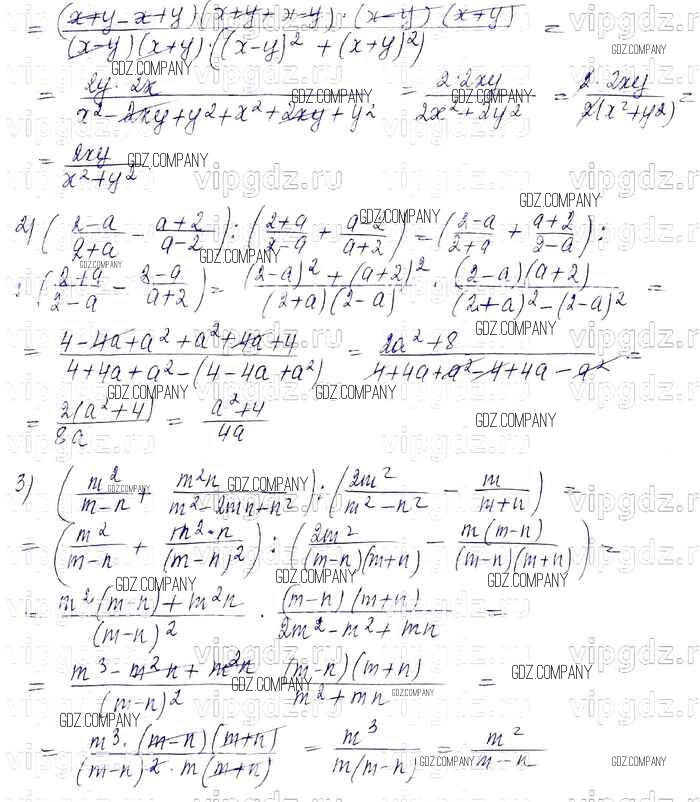 = ((x+y-x+y)(x+y+x-y)·(x-y)(x+y))/((x-y)(x+y)·((x-y)²+(x+y)²)) =
= (2y·2x)/(x²-2xy+y²+x²+2xy+y²) = (2·2xy)/(2x²+2y²) = (2·2xy)/(2(x²+y²)) =
= (2xy)/(x²+y²)
2) ((2-a)/(2+a) - (a+2)/(a-2)) : ((2+a)/(2-a) + (a-2)/(a+2)) = ((2-a)/(2+a) + (a+2)/(2-a)) :
: ((2+a)/(2-a) - (2-a)/(a+2)) = ((2-a)²+(a+2)²)/((2+a)(2-a)) · ((2-a)(a+2))/((2+a)²-(2-a)²) =
= (4-4a+a²+a²+4a+4)/(4+4a+a²-(4-4a+a²)) = (2a²+8)/(4+4a+a²-4+4a-a²) =
= (2(a²+4))/(8a) = (a²+4)/(4a)
3) (m²/(m-n) + (m²n)/(m²-2mn+n²)) : ((2m²)/(m²-n²) - m/(m+n)) =
= (m²/(m-n) + (m²·n)/((m-n)²)) : ((2m²)/((m-n)(m+n)) - (m(m-n))/((m-n)(m+n))) =
= (m²(m-n)+m²n)/((m-n)²) · ((m-n)(m+n))/(2m²-m²+mn) =
= (m³-m²n+m²n)/((m-n)²) · ((m-n)(m+n))/(m²+mn) =
= (m³·(m-n)(m+n))/((m-n)²·m(m+n)) = m³/(m(m-n)) = m²/(m-n)
GDZ.COMPANY
vipgdz.ru